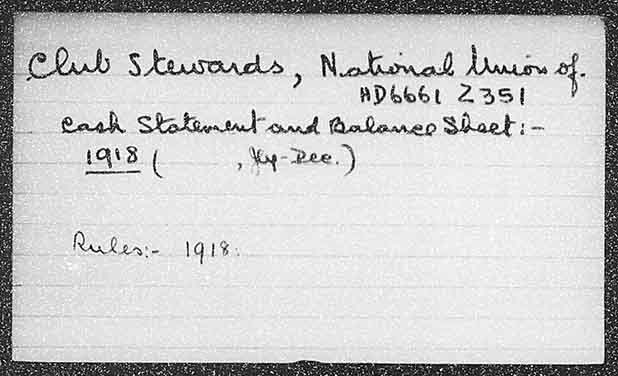 Club Stewards, National Union of.
HD6661 Z351
Cash Statement and Balance Sheet:-
1918 ( , Jy-Dec.)
Rules:- 1918.